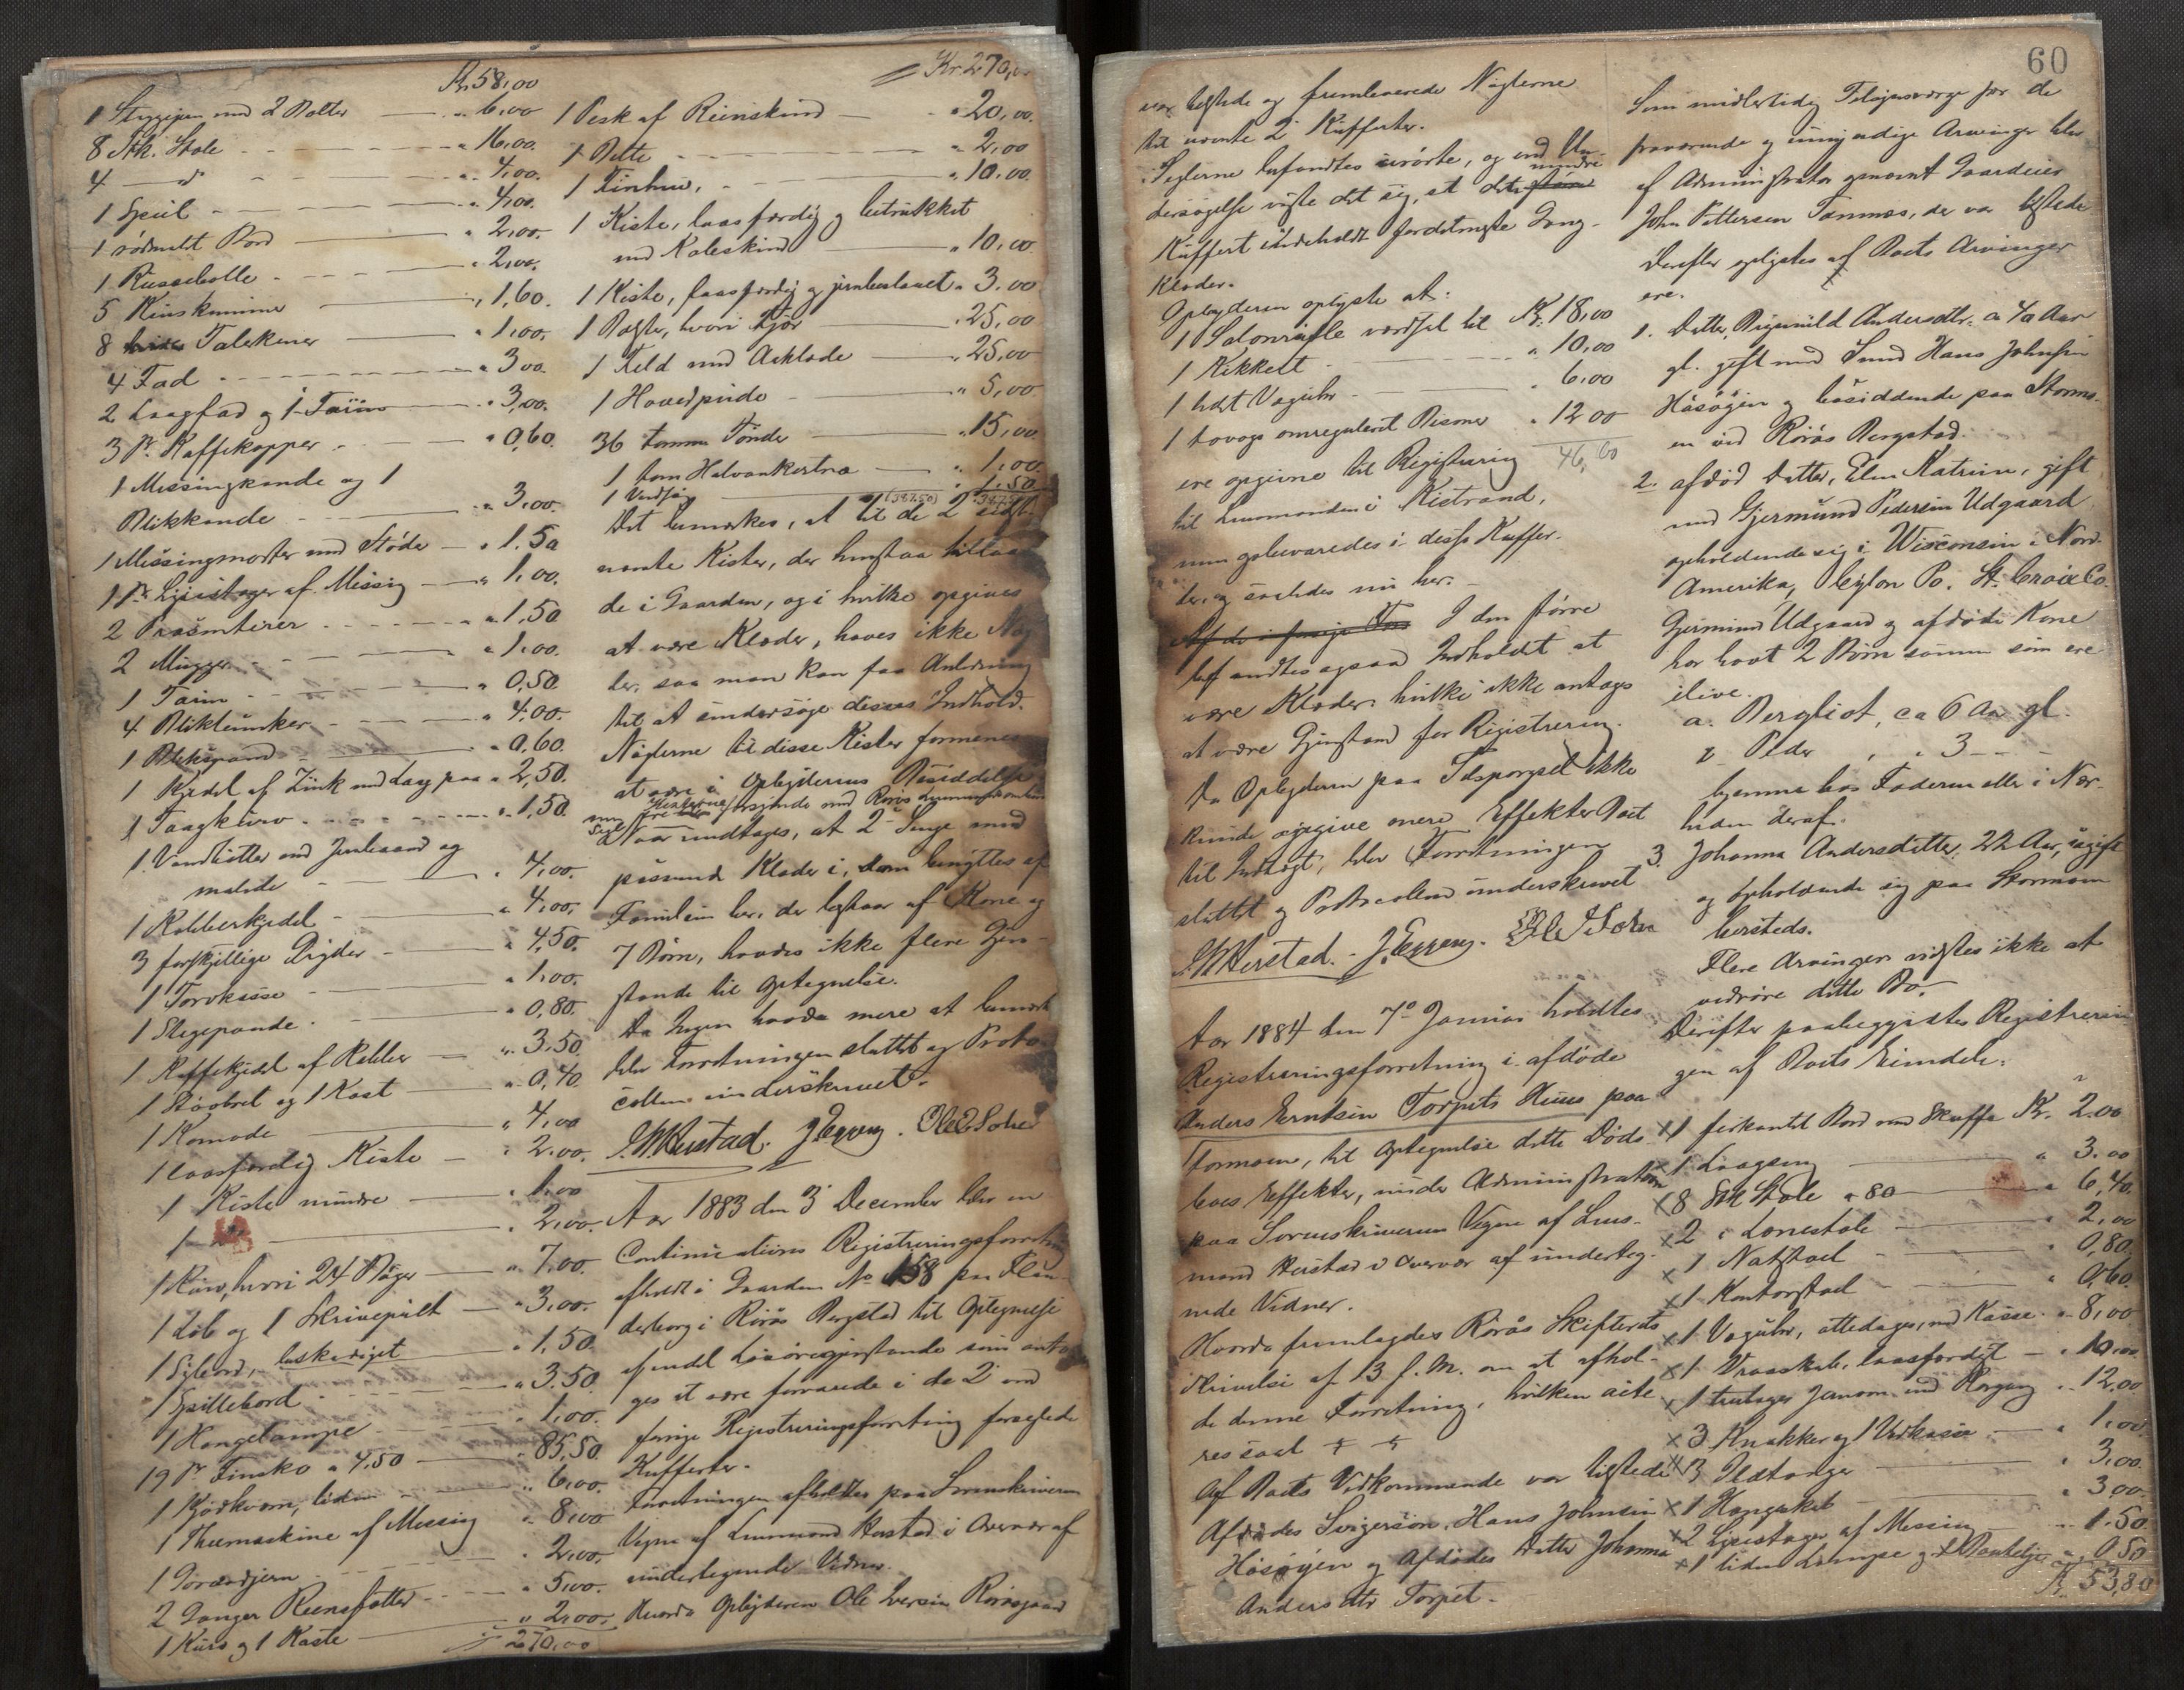 Kr. 58,00
1 Stryjern med 2 Bolter " 6,00
8 Stk. Stole " 16,00.
4 — d° " 4,00.
1 Speil " 4,00.
1 rødmalt Bord " 2,00.
1 Russebolle " 2,00.
5 " 1,60.
8 Talerkener " 1,00.
4 Fad " 3,00.
2 Laagfad og 1 Tarin " 3,00.
3 Pr. Kaffekopper " 0,60.
1 Messingkande og 1
Blikkande " 3,00.
1 Messingmorter med Støder " 1,50
1 Pr. Lysestager af Messing " 1,00.
2 Præsenterer " 1,50
2 Mugger " 1,00.
1 Tarin " 0,50
4 Blikdunker " 4,00.
1 Blikspand " 0,60.
1 Kjedel af Zink med Laag paa " 2,50.
1 Taagkurv " 1,50.
1 Vandbøtte med Jernbaand og
malede " 4,00.
1 Kobberkjedel " 4,00,
3 forskjellige Gryder " 4,50.
1 Torvkasse " 1,00.
1 Stegepande " 0,80.
1 Kaffekjedel af Kobber " 3,50.
1 Støvbret og 1 Kost " 0,40.
1 Komode " 4,00
1 laasfærdig Kiste " 2,00.
1 Kiste mindre " 1,00
1 — d° " 2,00.
1 Kurv, hvori 24 Bøger " 7,00.
1 Løb og 1 Skrivepult " 3,00.
1 Sybord, beskadiget " 1,50.
1 Spillebord " 3,50.
1 Hængelampe " 1,00.
19 Pr Finsko a 4,50 " 85,50.
1 Kjødkværn, liden " 6,00.
1 Theemaskine af Messing " 8,00
1 Goraadjern " 2,00.
2 Gange Reensføtter " 5,00.
1 Kurv og 1 Kaste " 2,00.
270,00
Kr. 270,00
1 Pesk af Reinskind " 20,00.
1 Belte " 2,00
1 Finhue, " 10,00.
1 Kiste, laasfærdig og betrukket
med Kobeskind " 10,00
1 Kiste, laasfærdig og jernbeslaaet " 3,00
1 Bolster, hvori Fjær " 25,00
1 Feld med Aaklæde " 25,00
1 Hovedpude " 5,00
36 tomme Tønder " 15,00
1 tom Halvankertnæ " 1,00.
1 " 1,50
(387,50)
Det bemærkes, at til de 2 sidst
nævnte Kister, der henstaa tillaa-
de i Gaarden, og i hvilke opgives
at være Klæder, haves ikke Nøg-
ler, saa man kan faa Anledning
til at undersøge disses Indhold.
Nøglerne til disse Kister formenes
at være i Opbyderens Besiddelse
Naar undtages, at 2 Senge med
passende Klæder i, som benyttes af
Familien her, der bestaar af Kone og
7 Børn, havdes ikke flere Gjen-
stande til Optegnelse.
Da Ingen havde mere at bemærke
blev Forretningen sluttet og Proto-
collen underskrevet.
J.M. Hustad. J. Eggen. Ole J. Sohn
Aar 1883 den 3 December blev en
Continuations Registreringsforretning
afholdt i Gaarden No 158 paa Flan-
derborg i Røros Bergstad til Optegnelse
af endel Løsøregjenstande som anta-
ges at være forvarede i de 2 ved
forrige Registreringsforretning forseglede
Kufferter.
Forretningen afholdtes paa Sorenskriverens
Vegne af Lensmand Hustad i Overvær af
undertegnede Vidner.
Hvorda Opbyderen Ole Iversen Rørosgaard
60
var tilstede og fremleverede Nøglerne
til nævnte 2 Kufferter.
Seglerne befandtes urørte, og ved Un-
dersøgelse viste det sig, at det mindre
Kuffert indeholdt fordetmeste Gang-
klæder.
Opbyderen oplyste at:
1 Salonrifle værdsat til Kr. 18,00
1 Kikkert " 10,00
1 Væguhr " 6,00
1 tovogs omreguleret Bismer " 12,00
46,00
ere opgivne til Registrering
til Lensmanden i Kistrand,
men gobevaredes i disse Kuffer-
ter, og saaledes nu her.
I den større
befandtes ogsaa Indholdet at
være Klæder, hvilke ikke antages
at være Gjenstand for Registrering.
Da Opbyderen paa Tilspørgsel ikke
kunde opgive mere Effekter Boet
til Indtægt, blev Forretningen
sluttet og Protocollen underskrevet
J.M. Hustad. J. Eggen. Ole J Sohn
Aar 1884 den 7° Januar holdtes
Registreringsforretning i afdøde
Anders Berntsen Torpets Huus paa
Stormoen, til Optegnelse dette Døds-
boes Effekter, under Administration
paa Sorenskriverens Vegne af Lens-
mand Hustad i Overvær af underteg-
nede Vidner.
Hvorda fremlagdes Røros Skifterets
Skrivelse af 13 f. M. om at afhol-
de denne Forretning, hvilken aite-
res saal
Af Boets Vedkommende var tilstede
Afdødes Svigersøn, Hans Johnsen
Høsøyen og Afdødes Datter Johanna
Andersdtr Torpet.
Som midlertidig Tilsynsværge for de
fraværende og umyndige Arvinger blev
af Administrator opnævnt Gaardeier
John Pettersen Tamnes, der var tilstede
Derefter oplystes af Boets Arvinger
ere.
1. Datter, Ragnhild Andersdtr. a 40 Aar
gl. gift med Smed Hans Johnsen
Høsøyen og bosiddende paa Stormo-
en ved Røros Bergstad.
2. afdød Datter, Elen Katrine, gift
med Gjermund Pedersen Udgaard
opholdende sig i Wisconsin i Nord-
Amerika, Ceylon Po. St. Croix Co.
Gjermund Udgaard og afdøde Kone
har havt 2 Børn sammen som ere
ilive.
a. Bergliot, ca 6 Aar gl.
b Peder " " 3 — —
hjemme hos Faderen eller i Nær-
heden deraf.
3. Johanna Andersdatter, 22 Aar, ugift
og opholdende sig paa Stormoen
bersteds.
Flere Arvinger vidstes ikke at
vedrøre dette Bo.
Derefter paabegyndtes Registrerin-
gen af Boets Eiendele:
x 1 firkantet Bord med Skuffe Kr. 2,00
x 1 Laagseng " 3,00
x 8 Stk Stole a 80 " 6,40
x 2 " Lænestole " 2,00
x 1 Natstoel " 0,80.
x 1 Kontorstoel " 0,60.
x 1 Væguhr, ottedages, med Kasse " 8,00
x 1 Vraaskab, laasfærdigt " 10,00.
x 1 treetages Jernovn med Rørgang " 12,00
x 3 Knakker og 1 Vedkasse " 1,00
x 3 Ildtænger " 3,00.
x 1 Hængeskab " 3,00.
x 2 Lysestager af Messing " 1,50.
x 1 liden Lampe og 1 " 0,50
Kr. 53,80